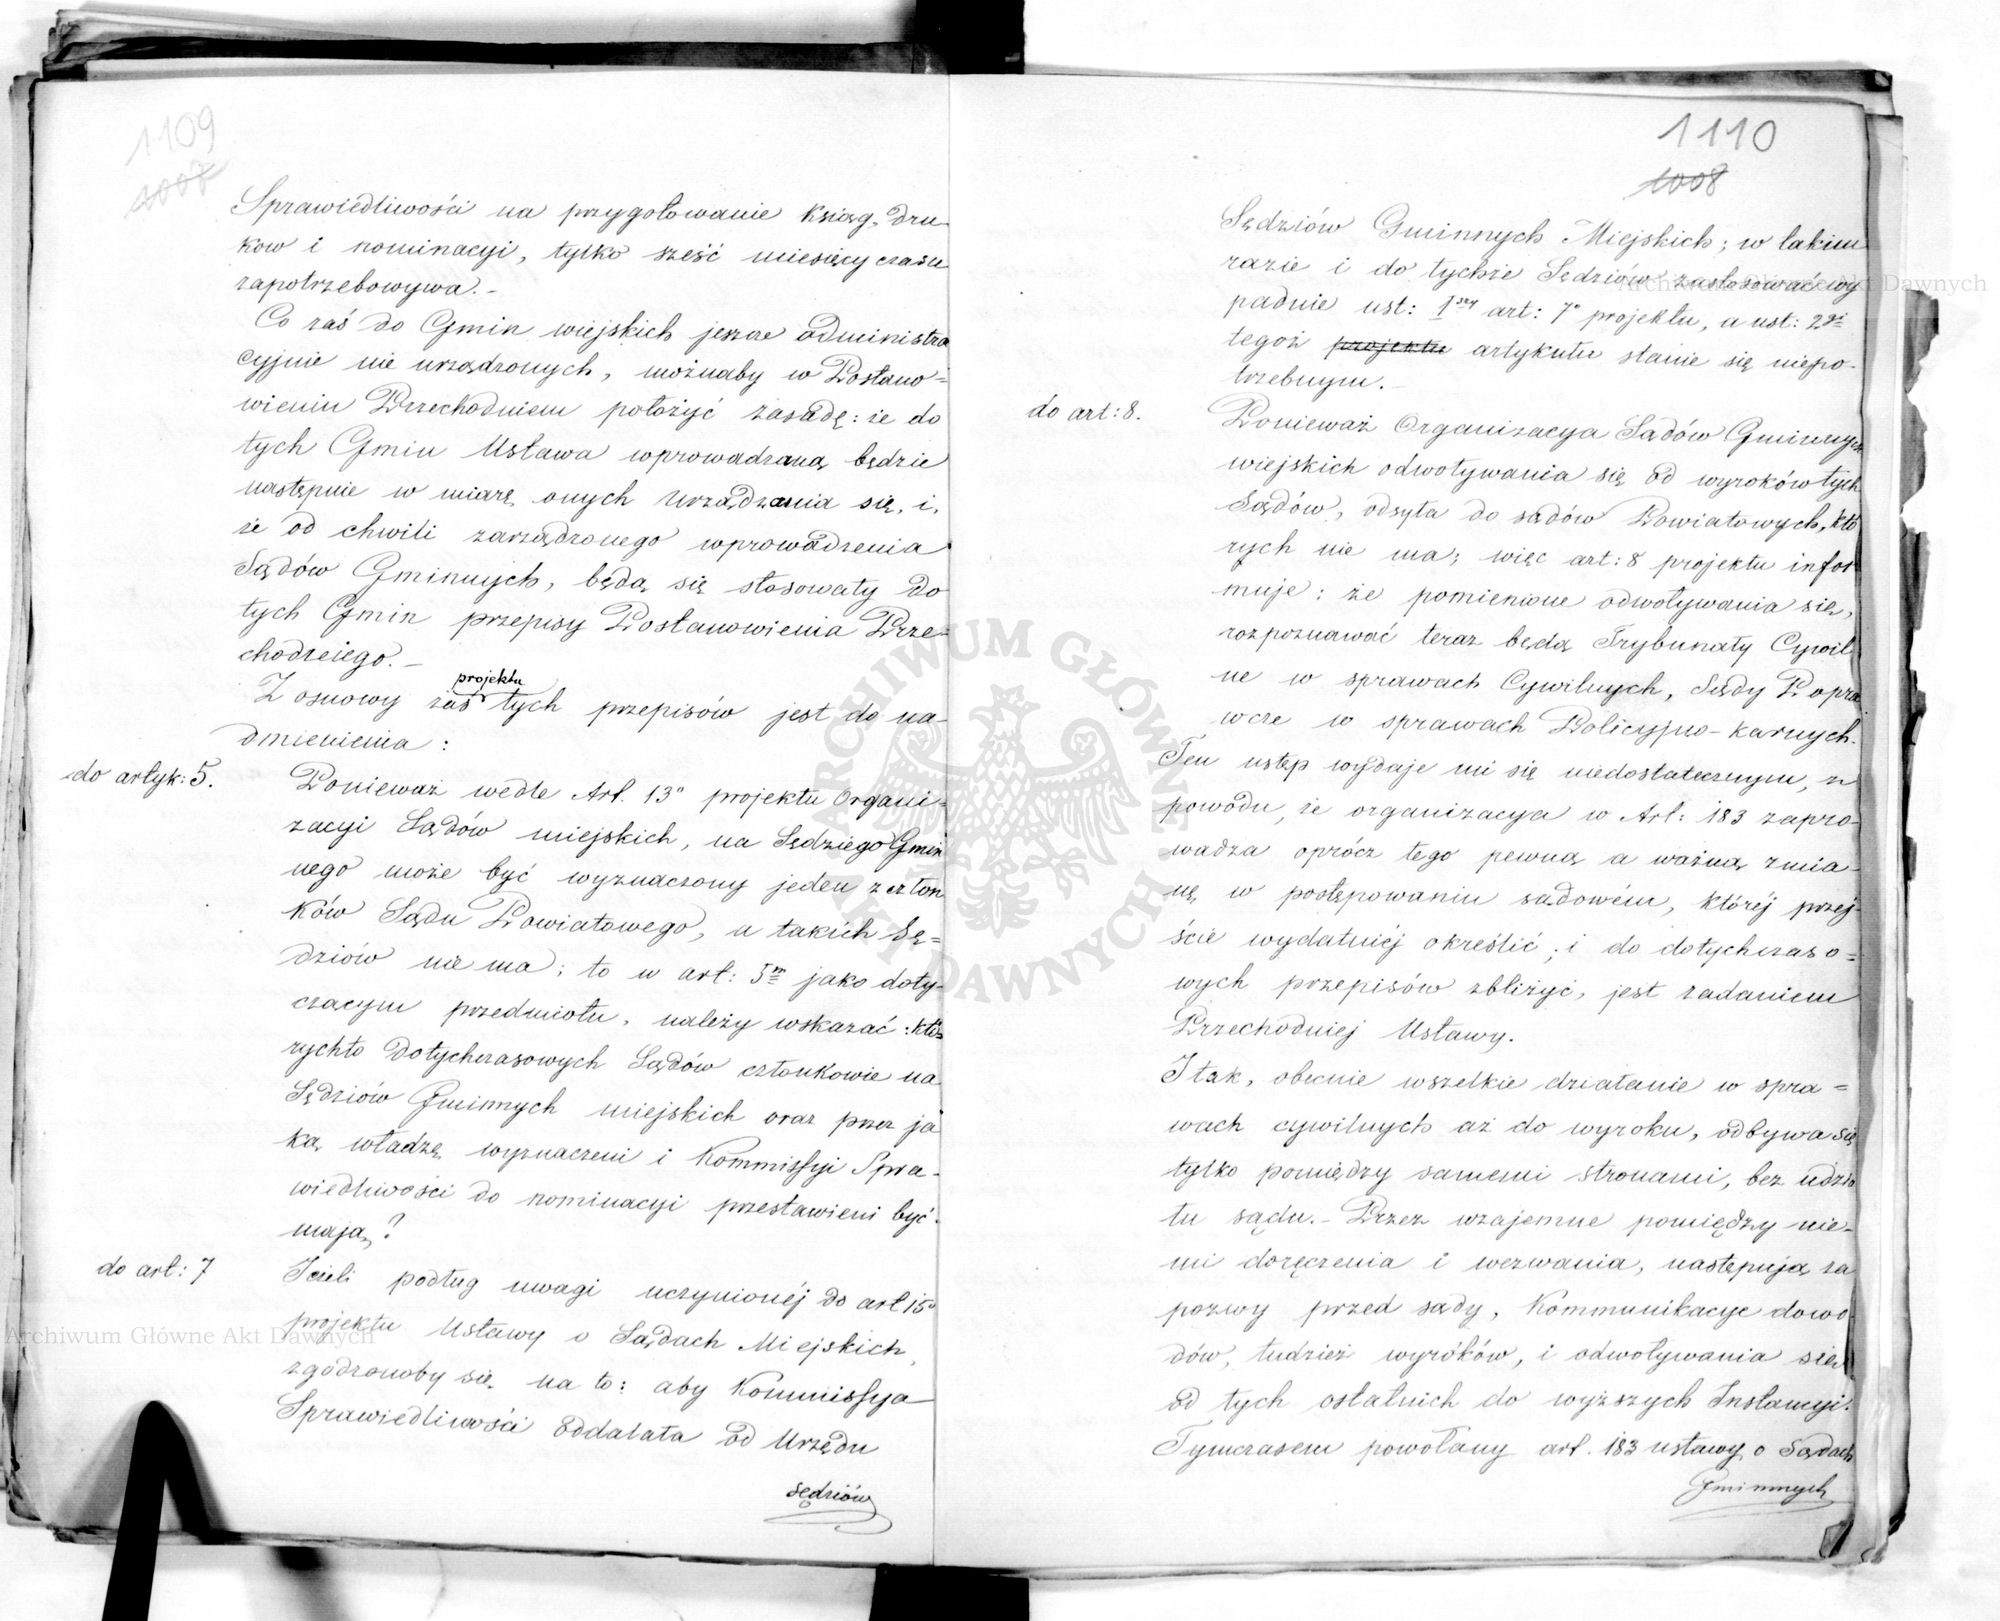 1109
1007
Sprawiedliwości na przygotowanie ksiąg, dru-
ków i nominacyi, tylko sześć miesięcy czasu
zapotrzebowywa. –
Co zaś do Gmin wiejskich jeszcze administra
cyjnie nie urządzonych, możnaby w Postano-
wieniu Przechodniem położyć zasadę: że do
tych Gmin Ustawa wprowadzaną będzie
następnie w miarę onych urządzania się, i,
że od chwili zarządzonego wprowadzenia
Sądów Gminnych, będą się stosowały do
tych Gmin przepisy Postanowienia Prze-
chodniego. –
projektu
Z osnowy zaś tych przepisów jest do na-
dmienienia :
do artyk: 5.
Ponieważ wedle Art. 13° projektu Organi-
zacyi Sądów miejskich, na Sędziego Gmin
nego może być wyznaczony jeden z człon
ków Sądu Powiatowego, a takich Sę=
dziów nie ma; to w art: 5m jako doty-
czącym przedmiotu, należy wskazać: któ-
rychto dotychczasowych Sądów członkowie na
Sędziów Gminnych miejskich oraz przez ja
ką władzę wyznaczeni i Kommissyi Spra-
wiedliwości do nominacyi przestawieni być
mają?
do art: 7
Jeżeli podług uwagi uczynionéj do art 15°
projektu Ustawy o Sądach Miejskich,
zgodzonoby się na to: aby Kommissya
Sprawiedliwości oddalała od Urzędu
sędziów
1110
1008
Sędziów Gminnych Miejskich; w takim
razie i do tychże Sędziów zastosować wy
padnie ust: 1szy art: 7° projektu, a ust: 2gi
tegoż projektu artykułu stanie się niepo-
trzebnym. –
do art: 8.
Ponieważ Organizacya Sądów Gminnych
wiejskich odwoływania się od wyroków tych
Sądów, odsyła do sądów Powiatowych, któ
rych nie ma; więc art: 8 projektu infor
muje: że pomienione odwoływania się,
rozpoznawać teraz będą Trybunały Cywil
ne w sprawach Cywilnych, Sądy Popra
wcze w sprawach Policyjno-karnych.
Ten ustęp wydaje mi się niedostatecznym, z
powodu, że organizacya w Art: 183 zapro-
wadza oprócz tego pewną a ważną zmia-
nę w postępowaniu sądowém, której przej-
ście wydatniéj określić, i do dotychczaso=
wych przepisów zbliżyć, jest zadaniem
Przechodniej Ustawy.
I tak, obecnie wszelkie działanie w spra=
wach cywilnych aż do wyroku, odbywa się
tylko pomiędzy samemi stronami, bez udzia
łu sądu. – Przez wzajemne pomiędzy nie-
mi doręczenia i wezwania, następują za
pozwy przed sądy, Kommunikacye dowo
dów, tudzież wyroków, i odwoływania się
od tych ostatnich do wyższych Instancyi.
Tymczasem powołany art. 183 ustawy o Sądach
Gminnych
ARCHIWUM GŁÓWNE AKT DAWNYCH
Archiwum Główne Akt Dawnych
Archiwum Główne Akt Dawnych